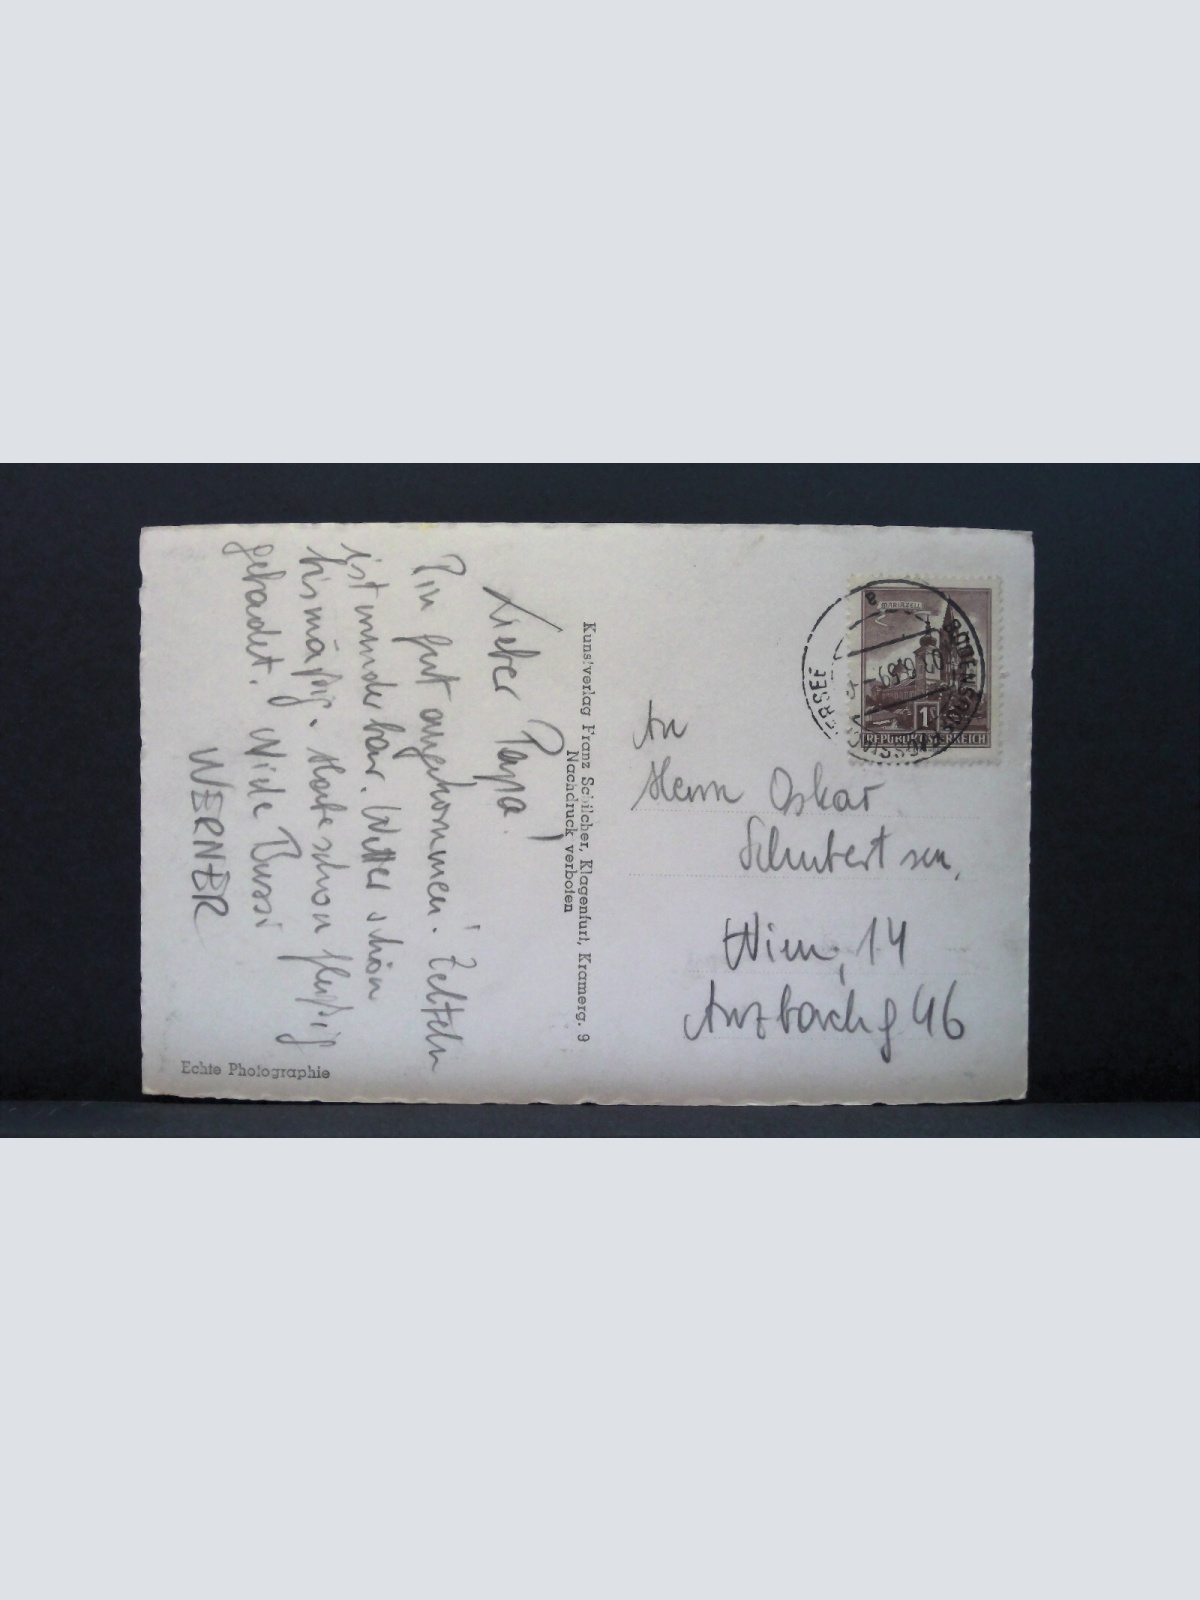 Lieber Papa!
Bin gut angekommen. Zelteln
ist wunderbar. Wetter schön
bis mäßig. Habe schon fleißig
gebadet. Viele Bussi
WERNER
Echte Photographie
Kunstverlag Franz Schilcher, Klagenfurt, Kramerg. 9
Nachdruck verboten
MARIAZELL
1 S
REPUBLIK ÖSTERREICH
BODENSDORF
OSSIACHERSEE
a
An
Herrn Oskar
Schubert sen.
Wien, 14
Anzbachg 46